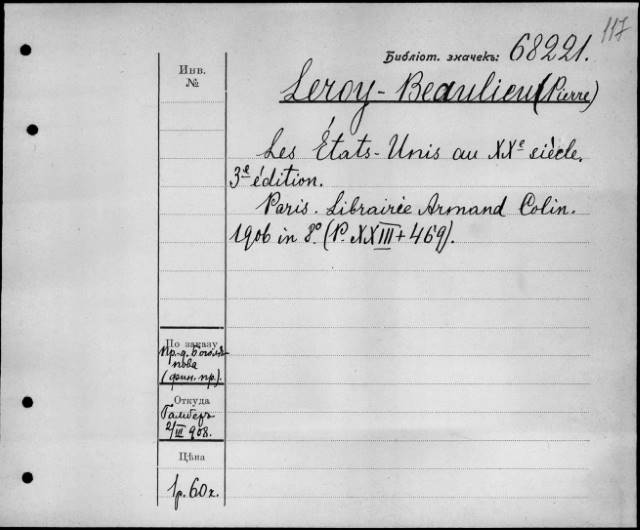 117
Библіот. значекъ: 68221.
Инв.
№
Leroy-Beaulieu (Pierre)
Les États-Unis au XXe siècle.
3e édition.
Paris. Librairie Armand Colin.
1906 in 8o. (P. XXIII + 469).
По заказу
Пр-д. Боголѣ-
пова
(фин. пр.).
Откуда
Гамберъ
2/III 908.
Цѣна
1р. 60к.